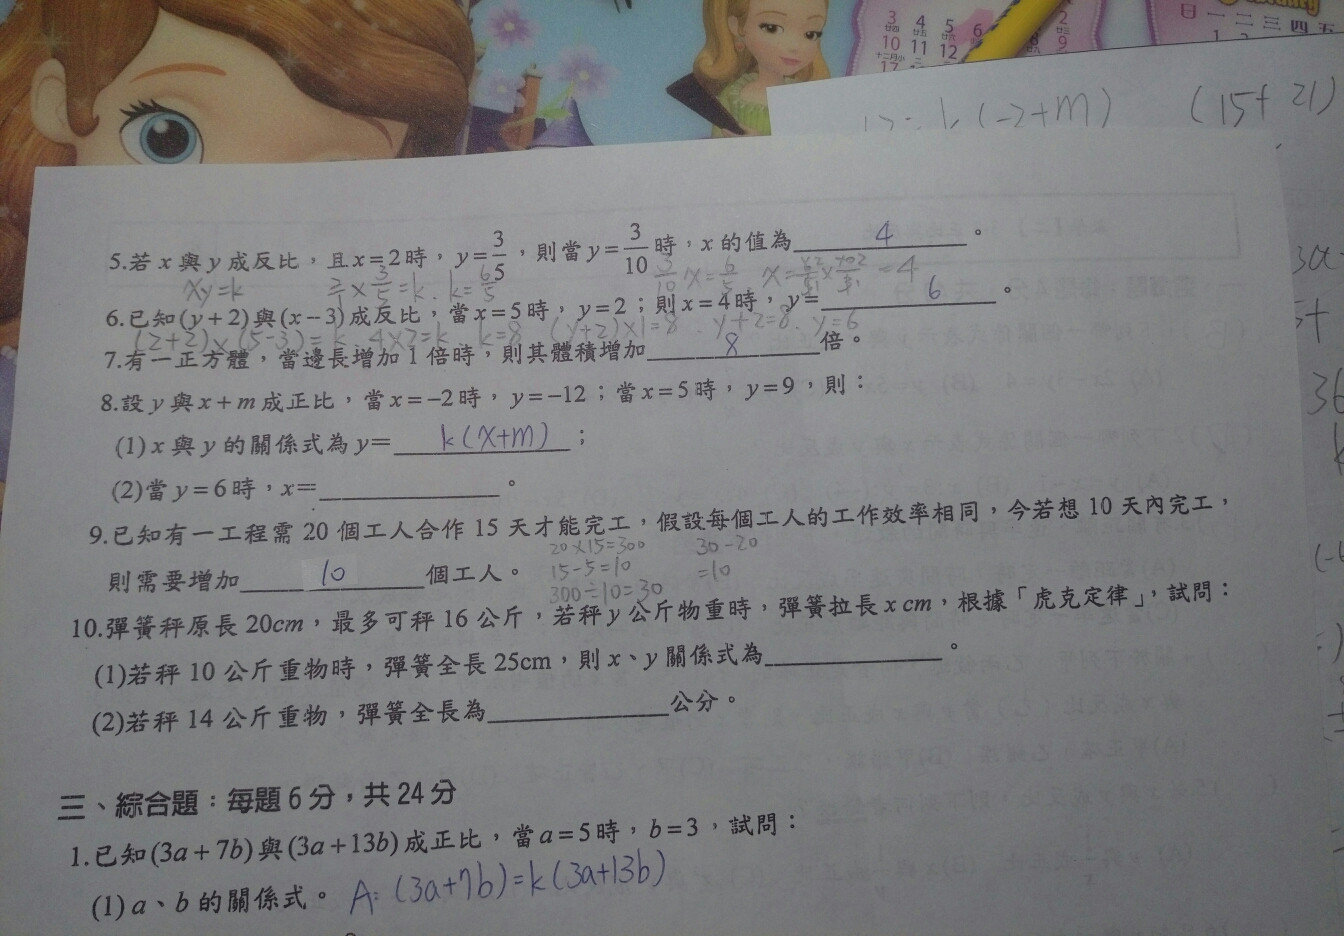 3 4 5 6
10 11 12
17
2
9
日 一 二 三 四 五
k(-2+m) (15+21)
5.若 x 與 y 成反比，且 x=2 時，y=3/5，則當 y=3/10 時，x 的值為 4 。
xy=k 2/1×3/5=k. k=6/5 3/10 x=6/5
6.已知(y+2)與(x-3)成反比，當 x=5 時，y=2；則 x=4 時，y= 6 。
(2+2)×(5-3)=k 4×2=k k=8 (y+2)×1=8. y+2=8. y=6
7.有一正方體，當邊長增加 1 倍時，則其體積增加 8 倍。
8.設 y 與 x+m 成正比，當 x=-2 時，y=-12；當 x=5 時，y=9，則：
(1)x 與 y 的關係式為 y= k(x+m) ；
(2)當 y=6 時，x= 。
9.已知有一工程需 20 個工人合作 15 天才能完工，假設每個工人的工作效率相同，今若想 10 天內完工，
20×15=300 30-20
則需要增加 10 個工人。 15-5=10 =10
300÷10=30
10.彈簧秤原長 20cm，最多可秤 16 公斤，若秤 y 公斤物重時，彈簧拉長 x cm，根據「虎克定律」，試問：
(1)若秤 10 公斤重物時，彈簧全長 25cm，則 x、y 關係式為 。
(2)若秤 14 公斤重物，彈簧全長為 公分。
三、綜合題：每題 6 分，共 24 分
1.已知(3a+7b)與(3a+13b)成正比，當 a=5 時，b=3，試問：
(1) a、b 的關係式。 A: (3a+7b)=k(3a+13b)